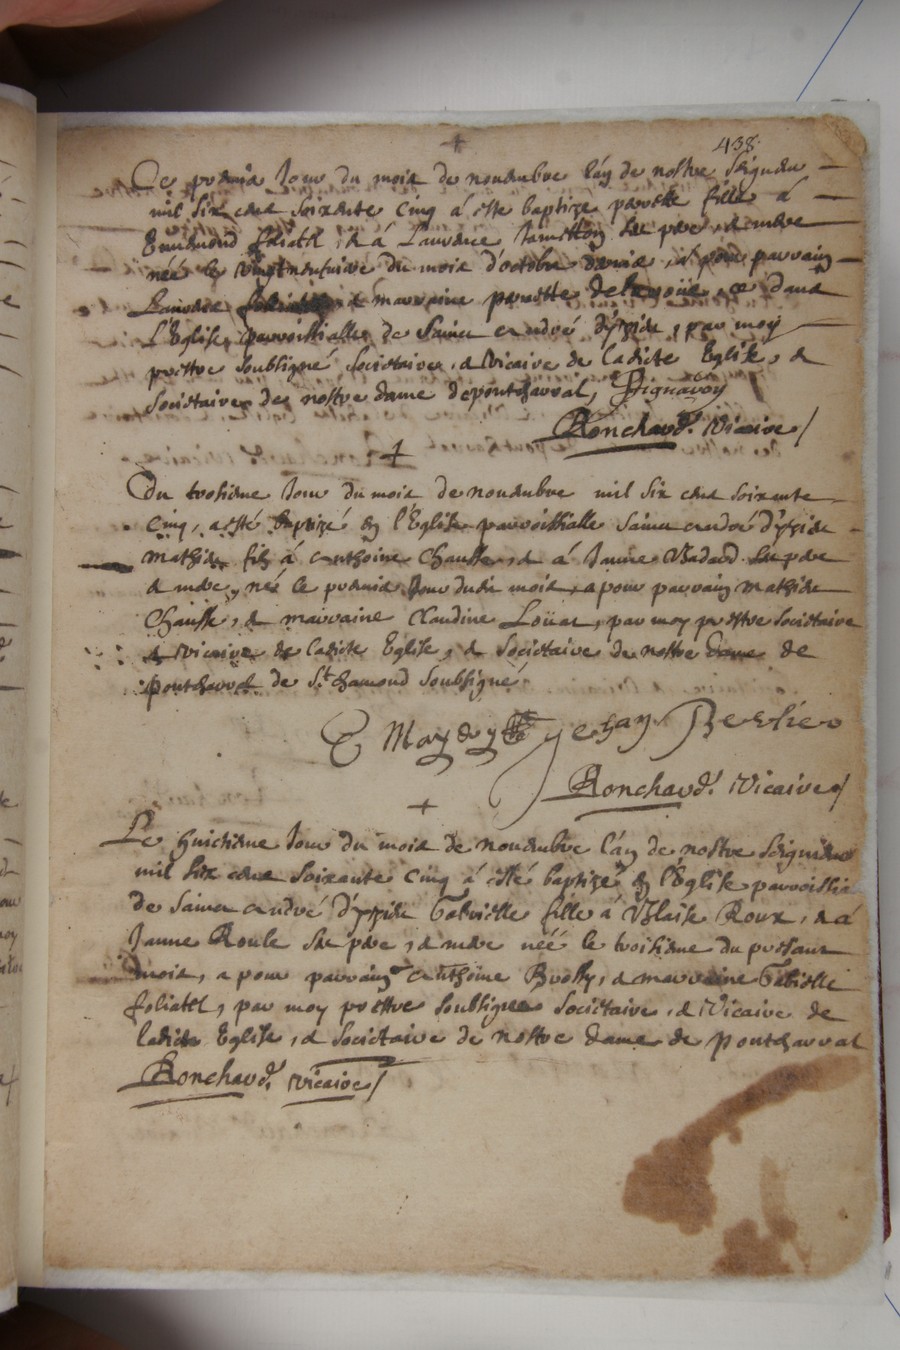 438
Ce premier Jour du mois de nouembre l'an de nostre Seigneur
mil six cent soixante cinq á esté baptize perette fille á
Ennemond & á Laurence ses pere, et mere
née le vingtneufuieme du mois d'octobre dernier, et pour parrain
Laurent et marraine perrette, et dans
l'Eglise parroissialle de Sainct andré d'yzieu, par moy
prestre soubsigné Societaire, et Vicaire de ladicte Eglise, et
Societaire de nostre dame de pontcharrat,
Ronchard. Vicaire
Du troisieme Jour du mois de nouembre mil six cent soixante
Cinq, a esté baptizé en l'Eglise parroissialle Sainct andré d'yzieu
mathieu filz á anthoine Chausse, et á Janne Badard ses pere
et mere, né le premier Jour dudit mois, a pour parrain mathieu
Chausse, et marraine Claudine Loüat, par moy prestre Societaire
et Vicaire de ladicte Eglise, et Societaire de nostre dame de
pontcharrat de St. chamond soubsigné
Jehan Berlier
Ronchard. Vicaire
Le huictieme Jour du mois de nouembre l'an de nostre Seigneur
mil six cent soixante cinq á esté baptizé en l'Eglise parroissia
de Sainct andré d'yzieu Gabrielle fille á Blaise Roux, et á
Janne Roule ses pere, et mere néé le troisieme du present
mois, a pour parrain anthoine et marraine Gabrielle
foliatel, par moy prestre soubsigné Societaire, et Vicaire de
ladicte Eglise, et Societaire de nostre dame de pontcharrat
Ronchard. Vicaire